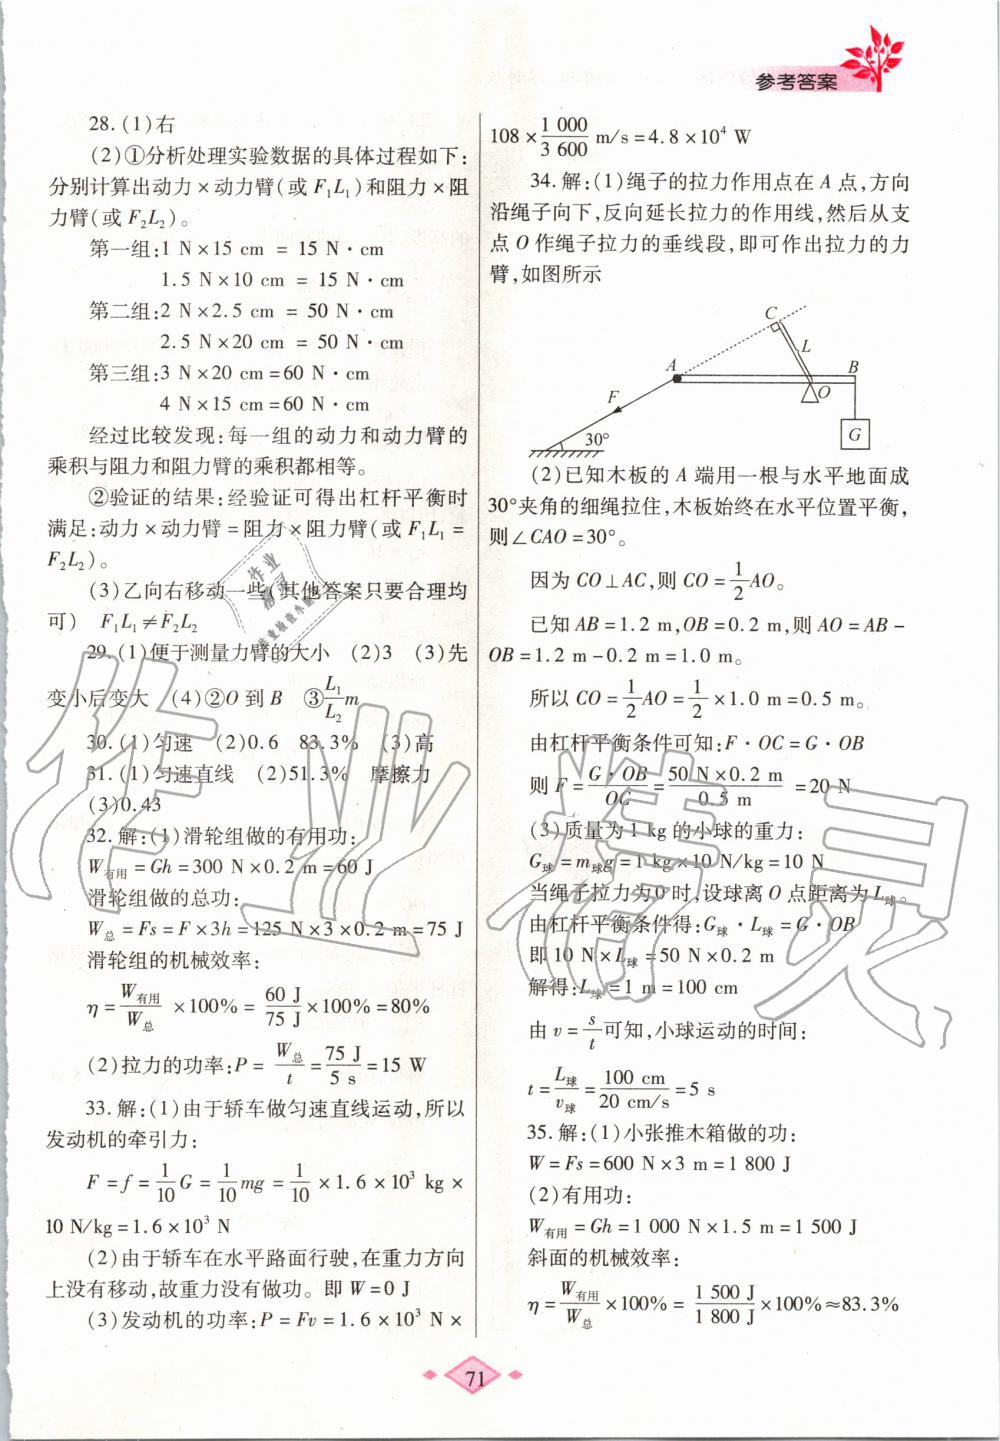 参考答案
28. (1)右
(2)①分析处理实验数据的具体过程如下:
分别计算出动力×动力臂(或F₁L₁)和阻力×阻
力臂(或F₂L₂)。
第一组:1 N×15 cm = 15 N·cm
1.5 N×10 cm = 15 N·cm
第二组:2 N×2.5 cm = 50 N·cm
2.5 N×20 cm = 50 N·cm
第三组:3 N×20 cm=60 N·cm
4 N×15 cm=60 N·cm
经过比较发现:每一组的动力和动力臂的
乘积与阻力和阻力臂的乘积都相等。
②验证的结果:经验证可得出杠杆平衡时
满足:动力×动力臂=阻力×阻力臂(或F₁L₁=
F₂L₂)。
(3)乙向右移动一些(其他答案只要合理均
可) F₁L₁≠F₂L₂
29. (1)便于测量力臂的大小 (2)3 (3)先
变小后变大 (4)②O到B ③L₁/L₂ m
30. (1)匀速 (2)0.6 83.3% (3)高
31. (1)匀速直线 (2)51.3% 摩擦力
(3)0.43
32. 解:(1)滑轮组做的有用功:
W有用=Gh=300 N×0.2 m=60 J
滑轮组做的总功:
W总=Fs=F×3h=125 N×3×0.2 m=75 J
滑轮组的机械效率:
η=W有用/W总×100%=60 J/75 J×100%=80%
(2)拉力的功率:P=W总/t=75 J/5 s=15 W
33. 解:(1)由于轿车做匀速直线运动,所以
发动机的牵引力:
F=f=1/10 G=1/10 mg=1/10×1.6×10³ kg×
10 N/kg=1.6×10³ N
(2)由于轿车在水平路面行驶,在重力方向
上没有移动,故重力没有做功。即W=0 J
(3)发动机的功率:P=Fv=1.6×10³ N×
108×1 000/3 600 m/s=4.8×10⁴ W
34. 解:(1)绳子的拉力作用点在A点,方向
沿绳子向下,反向延长拉力的作用线,然后从支
点O作绳子拉力的垂线段,即可作出拉力的力
臂,如图所示
C
L
A
B
O
F
G
30°
(2)已知木板的A端用一根与水平地面成
30°夹角的细绳拉住,木板始终在水平位置平衡,
则∠CAO=30°。
因为CO⊥AC,则CO=1/2 AO。
已知AB=1.2 m,OB=0.2 m,则AO=AB-
OB=1.2 m-0.2 m=1.0 m。
所以CO=1/2 AO=1/2×1.0 m=0.5 m。
由杠杆平衡条件可知:F·OC=G·OB
则F=G·OB/OC=50 N×0.2 m/0.5 m=20 N
(3)质量为1 kg的小球的重力:
G球=m球g=1 kg×10 N/kg=10 N
当绳子拉力为0时,设球离O点距离为L球。
由杠杆平衡条件得:G球·L球=G·OB
即10 N×L球=50 N×0.2 m
解得:L球=1 m=100 cm
由v=s/t可知,小球运动的时间:
t=L球/v球=100 cm/20 cm/s=5 s
35. 解:(1)小张推木箱做的功:
W=Fs=600 N×3 m=1 800 J
(2)有用功:
W有用=Gh=1 000 N×1.5 m=1 500 J
斜面的机械效率:
η=W有用/W总×100%=1 500 J/1 800 J×100%≈83.3%
71
作业精灵